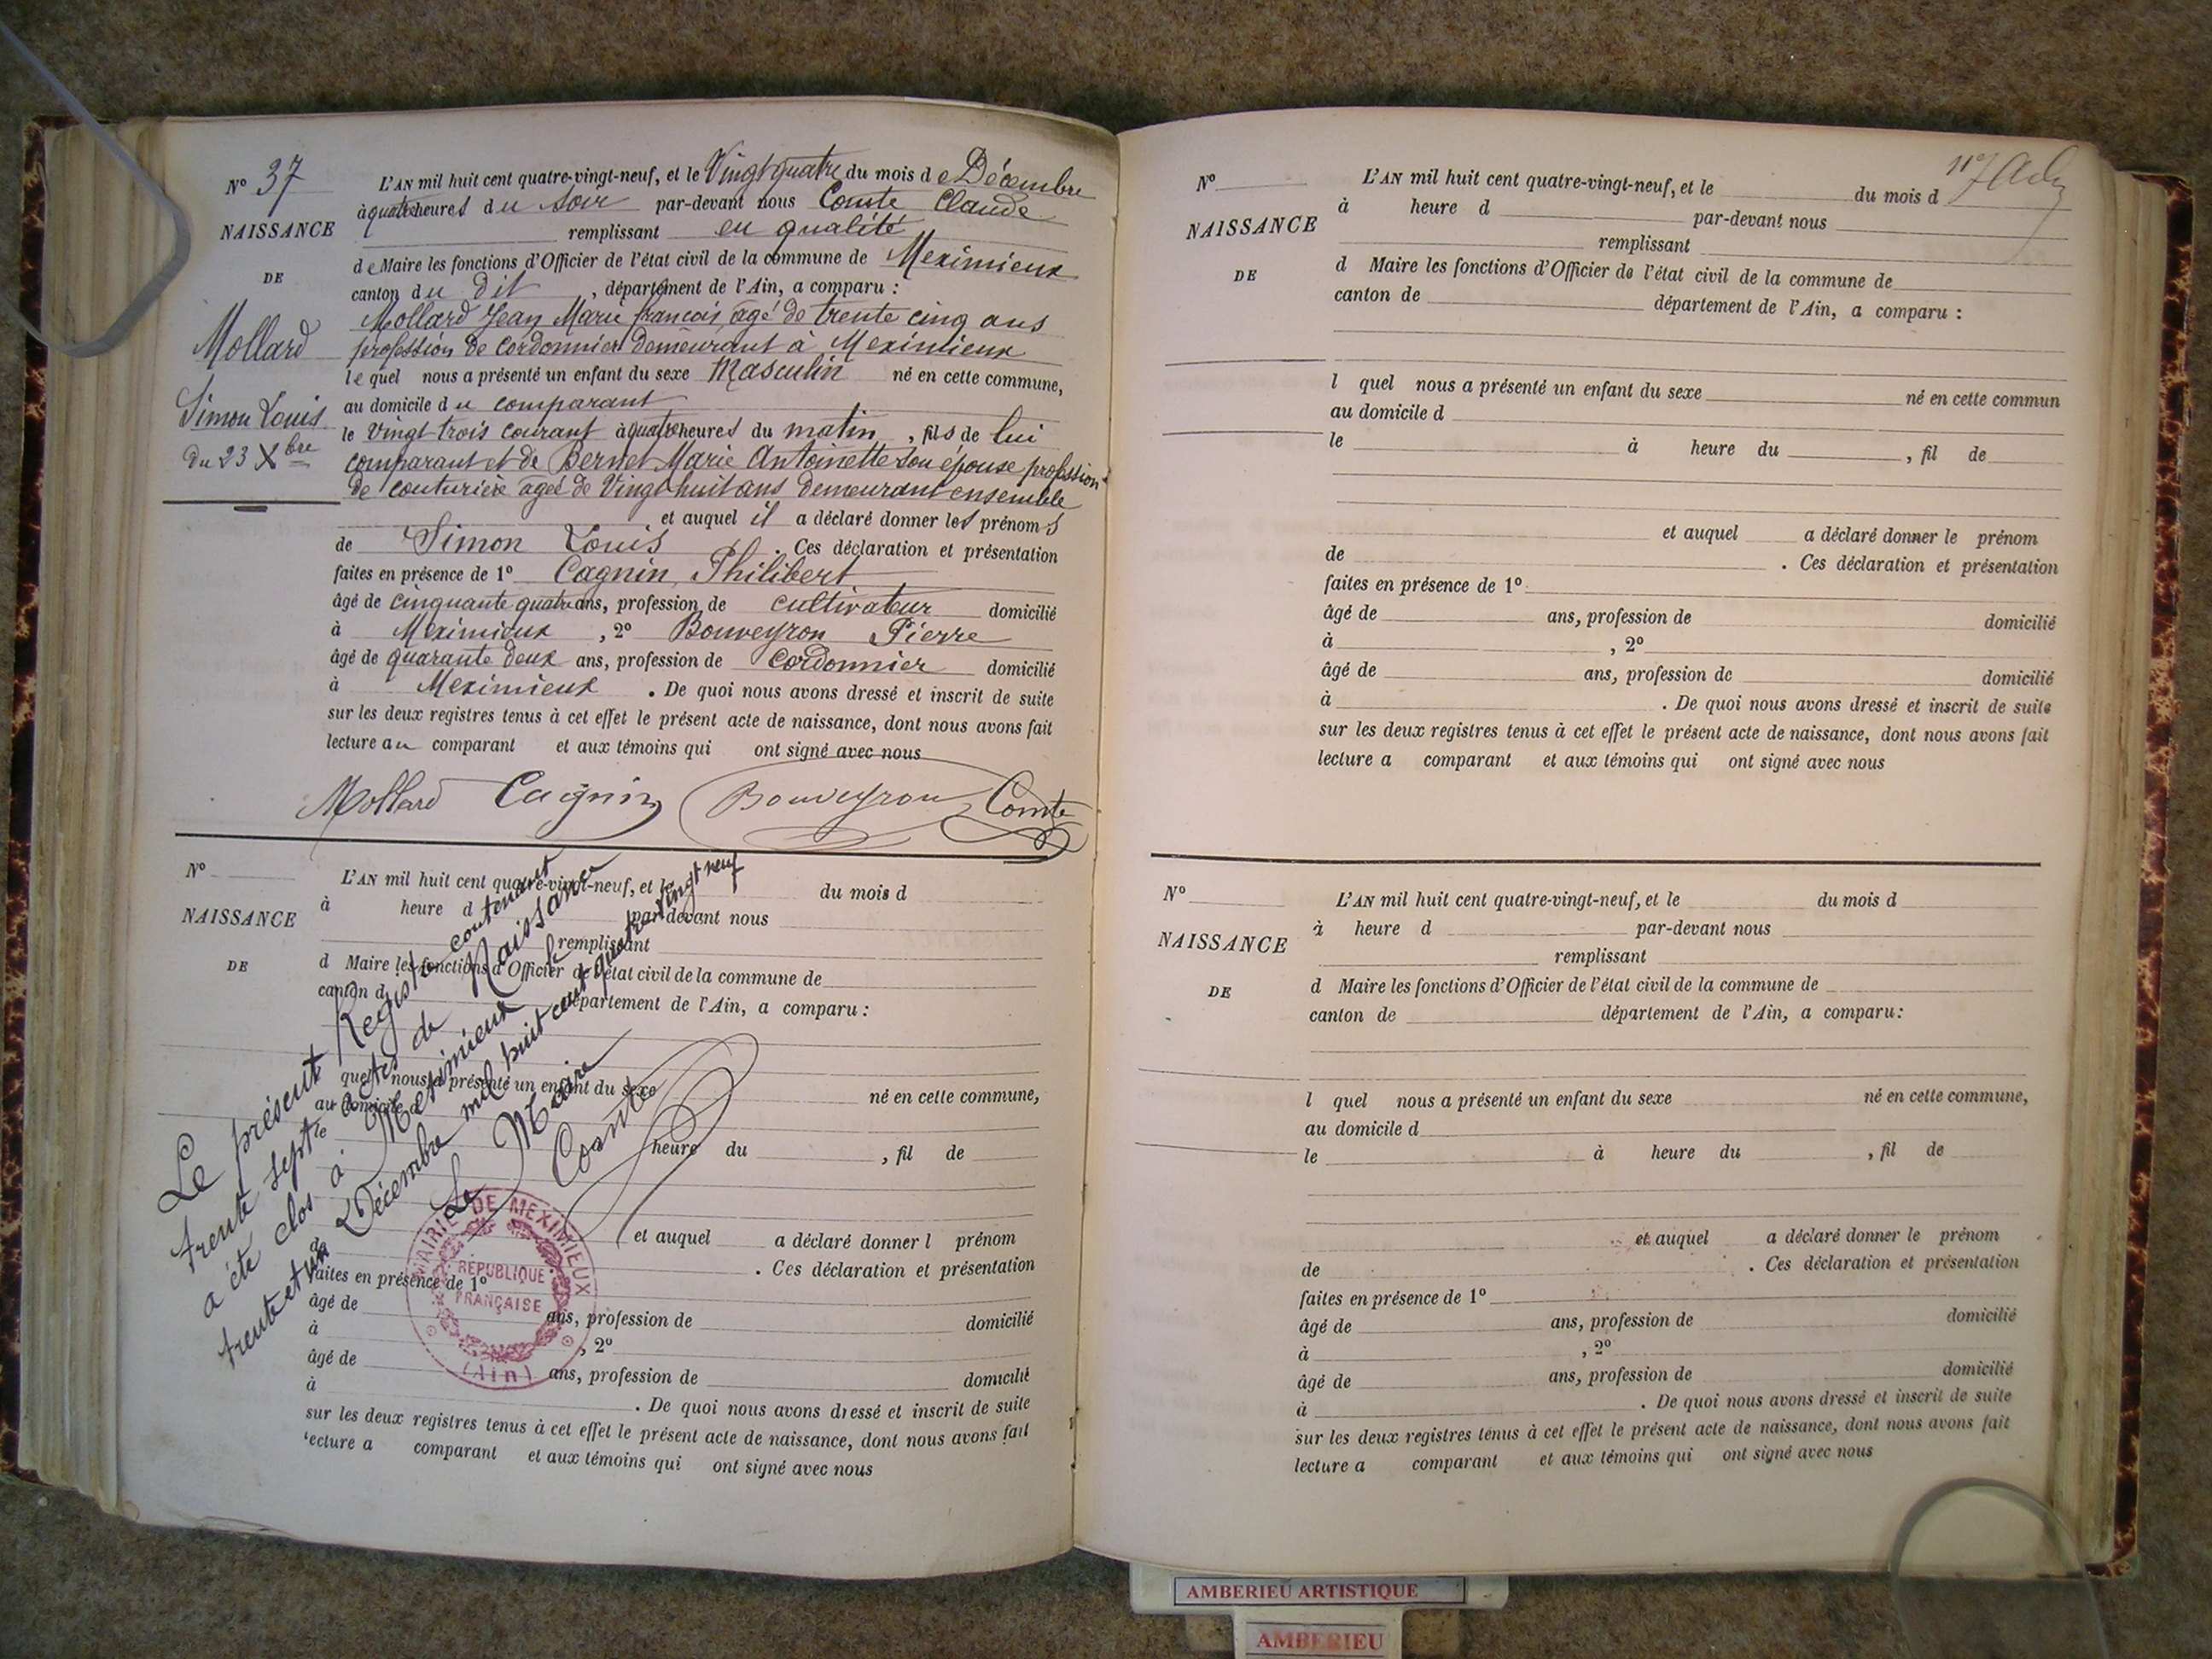 N° 37
NAISSANCE
DE
Mollard
Simon Louis
du 23 Xbre
L'AN mil huit cent quatre-vingt-neuf, et le Vingt quatre du mois de Décembre
à quatre heures du soir par-devant nous Comte Claude
remplissant en qualité
de Maire les fonctions d'Officier de l'état civil de la commune de Meximieux
canton du dit, département de l'Ain, a comparu :
Mollard Jean Marie françois âgé de trente cinq ans
profession de Cordonnier demeurant à Meximieux
lequel nous a présenté un enfant du sexe Masculin né en cette commune,
au domicile du comparant
le vingt-trois courant à quatre heures du matin, fils de lui
comparant et de Bernet Marie Antoinette son épouse profession
de couturière agée de Vingt huit ans demeurant ensemble
et auquel il a déclaré donner les prénoms
de Simon Louis. Ces déclaration et présentation
faites en présence de 1° Cagnin Philibert
âgé de cinquante quatre ans, profession de cultivateur domicilié
à Meximieux, 2° Bouveyron Pierre
âgé de quarante deux ans, profession de Cordonnier domicilié
à Meximieux. De quoi nous avons dressé et inscrit de suite
sur les deux registres tenus à cet effet le présent acte de naissance, dont nous avons fait
lecture au comparant et aux témoins qui ont signé avec nous
Mollard Cagnin Bouveyron Comte
N°
NAISSANCE
DE
L'AN mil huit cent quatre-vingt-neuf, et le du mois d
à heure d par-devant nous
remplissant
d Maire les fonctions d'Officier de l'état civil de la commune de
canton d département de l'Ain, a comparu :
quel nous a présenté un enfant du sexe né en cette commune,
au domicile d
le heure du , fil de
et auquel a déclaré donner l prénom
de . Ces déclaration et présentation
faites en présence de 1°
âgé de ans, profession de domicilié
à , 2°
âgé de ans, profession de domicilié
à . De quoi nous avons dressé et inscrit de suite
sur les deux registres tenus à cet effet le présent acte de naissance, dont nous avons fait
lecture a comparant et aux témoins qui ont signé avec nous
Le présent Registre contenant
trente sept actes de Naissance
a été clos à Meximieux le
trente et un Décembre mil huit cent quatre vingt neuf
Le Maire
Comte
MAIRIE DE MEXIMIEUX
RÉPUBLIQUE
FRANÇAISE
(Ain)
N°
NAISSANCE
DE
L'AN mil huit cent quatre-vingt-neuf, et le du mois d
à heure d par-devant nous
remplissant
d Maire les fonctions d'Officier de l'état civil de la commune de
canton de département de l'Ain, a comparu :
l quel nous a présenté un enfant du sexe né en cette commun
au domicile d
le à heure du , fil de
et auquel a déclaré donner le prénom
de . Ces déclaration et présentation
faites en présence de 1°
âgé de ans, profession de domicilié
à , 2°
âgé de ans, profession de domicilié
à . De quoi nous avons dressé et inscrit de suite
sur les deux registres tenus à cet effet le présent acte de naissance, dont nous avons fait
lecture a comparant et aux témoins qui ont signé avec nous
N°
NAISSANCE
DE
L'AN mil huit cent quatre-vingt-neuf, et le du mois d
à heure d par-devant nous
remplissant
d Maire les fonctions d'Officier de l'état civil de la commune de
canton de département de l'Ain, a comparu:
l quel nous a présenté un enfant du sexe né en cette commune,
au domicile d
le à heure du , fil de
et auquel a déclaré donner le prénom
de . Ces déclaration et présentation
faites en présence de 1°
âgé de ans, profession de domicilié
à , 2°
âgé de ans, profession de domicilié
à . De quoi nous avons dressé et inscrit de suite
sur les deux registres tenus à cet effet le présent acte de naissance, dont nous avons fait
lecture a comparant et aux témoins qui ont signé avec nous
AMBERIEU ARTISTIQUE
AMBERIEU